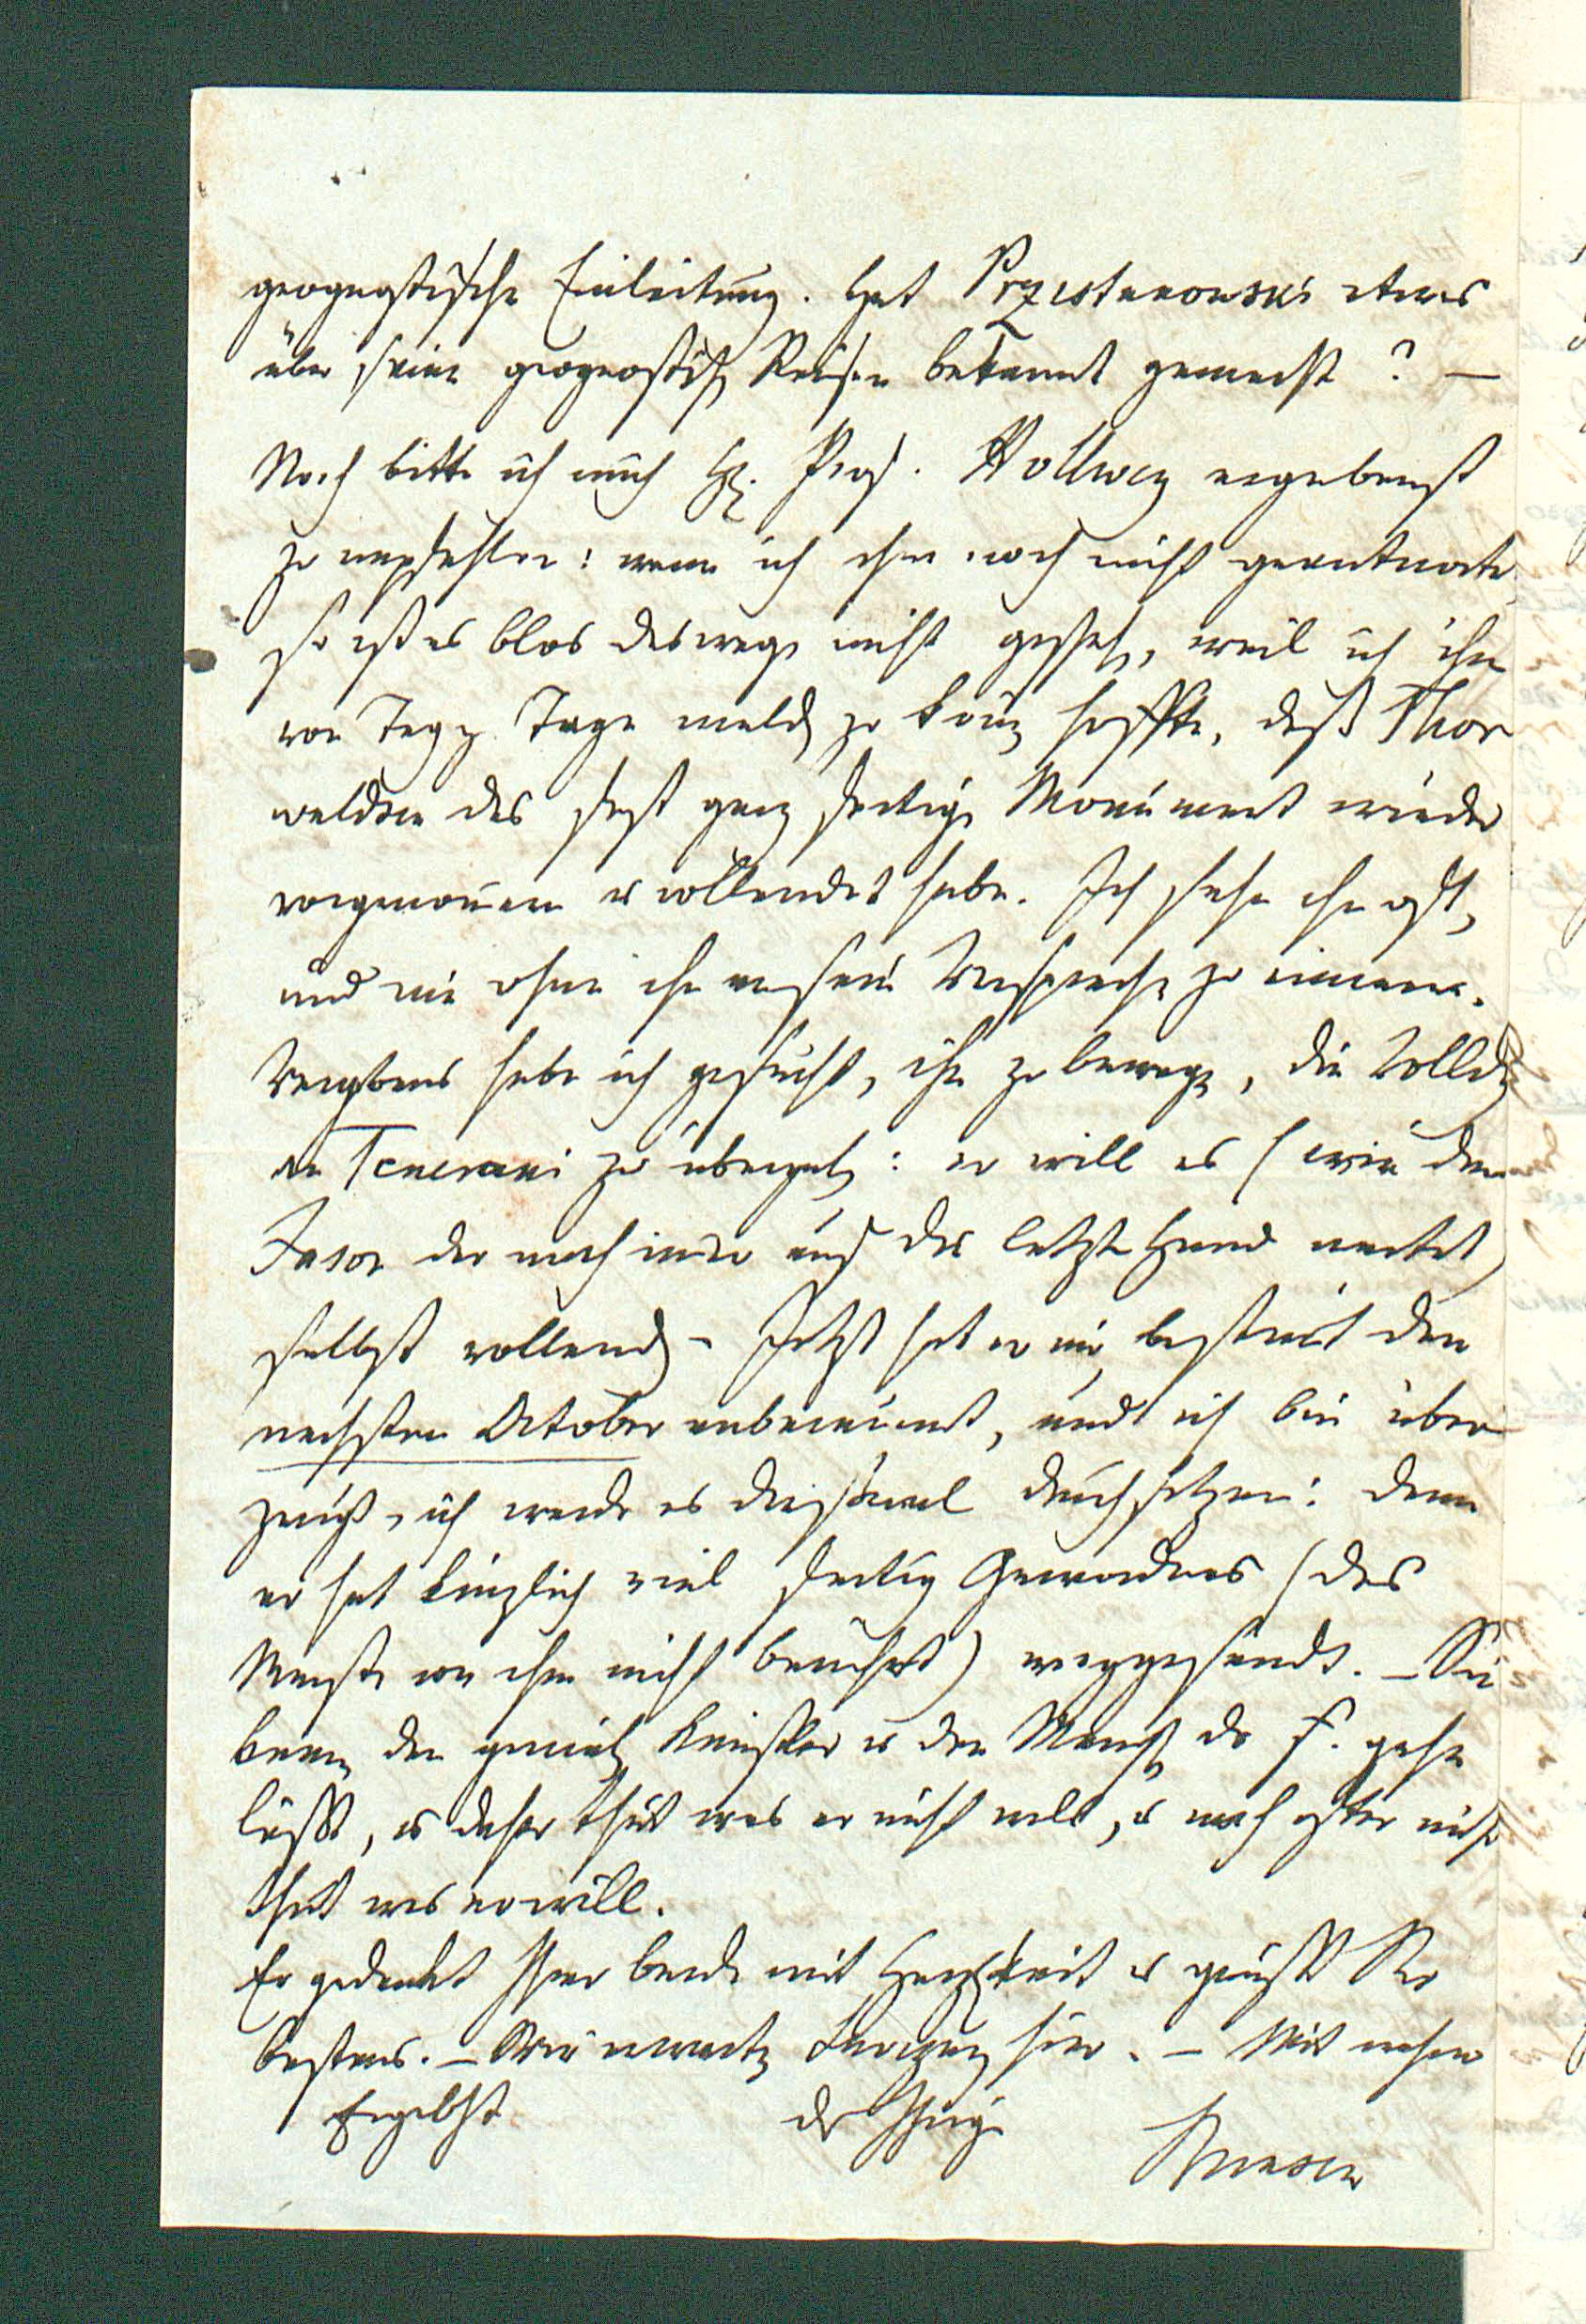 geognostische Einleitung. Hat Przistanowski etwas
über seine geognostisch Reisen bekannt gemacht? —
Noch bitte ich mich H. Prof. Hollweg ergebenst
zu empfehlen: wenn ich ihm noch nicht geantwortet
so ist es blos deswegen nicht geschehen, weil ich ihm
von Tag z Tage melden zu können hoffte, daß Thor
waldsen das fast ganz fertige Monument wieder
vorgenommen u vollendet habe. Ich sehe ihn oft,
und nie ohne ihn an sein Versprechen zu erinnern.
Vergebens habe ich gesucht, ihn zu bewegen, die Vollendg
an Tenerani zu übergeben: er will es (wie den
Jason der noch immer auf die letzte Hand wartet)
selbst vollenden. Jetzt hat er mir bestimt den
nachsten October anberaumt, und ich bin über
zeugt, ich werde es diesmal durchsetzen: denn
er hat kürzlich viel fertig Gewordenes (das
Meiste von ihm nicht berührt) weggesandt. — Sie
kennen den genialen Künstler u den Menschen der s. gehn
läßt, u daher thut was er nicht will, u noch öfter nicht
thut was er will.
Er gedenkt Ihrer beide mit Herzlichkeit u grüßt Sie
bestens. — Wir erwarten hier. — Mit wahrer
Ergebht der Ihrige
Bunsen